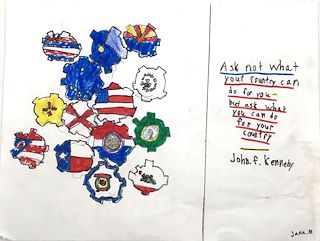 Ask not what
your country can
do for you
but ask what
you can do
for your
country
John. f. Kennedy
Jana. M